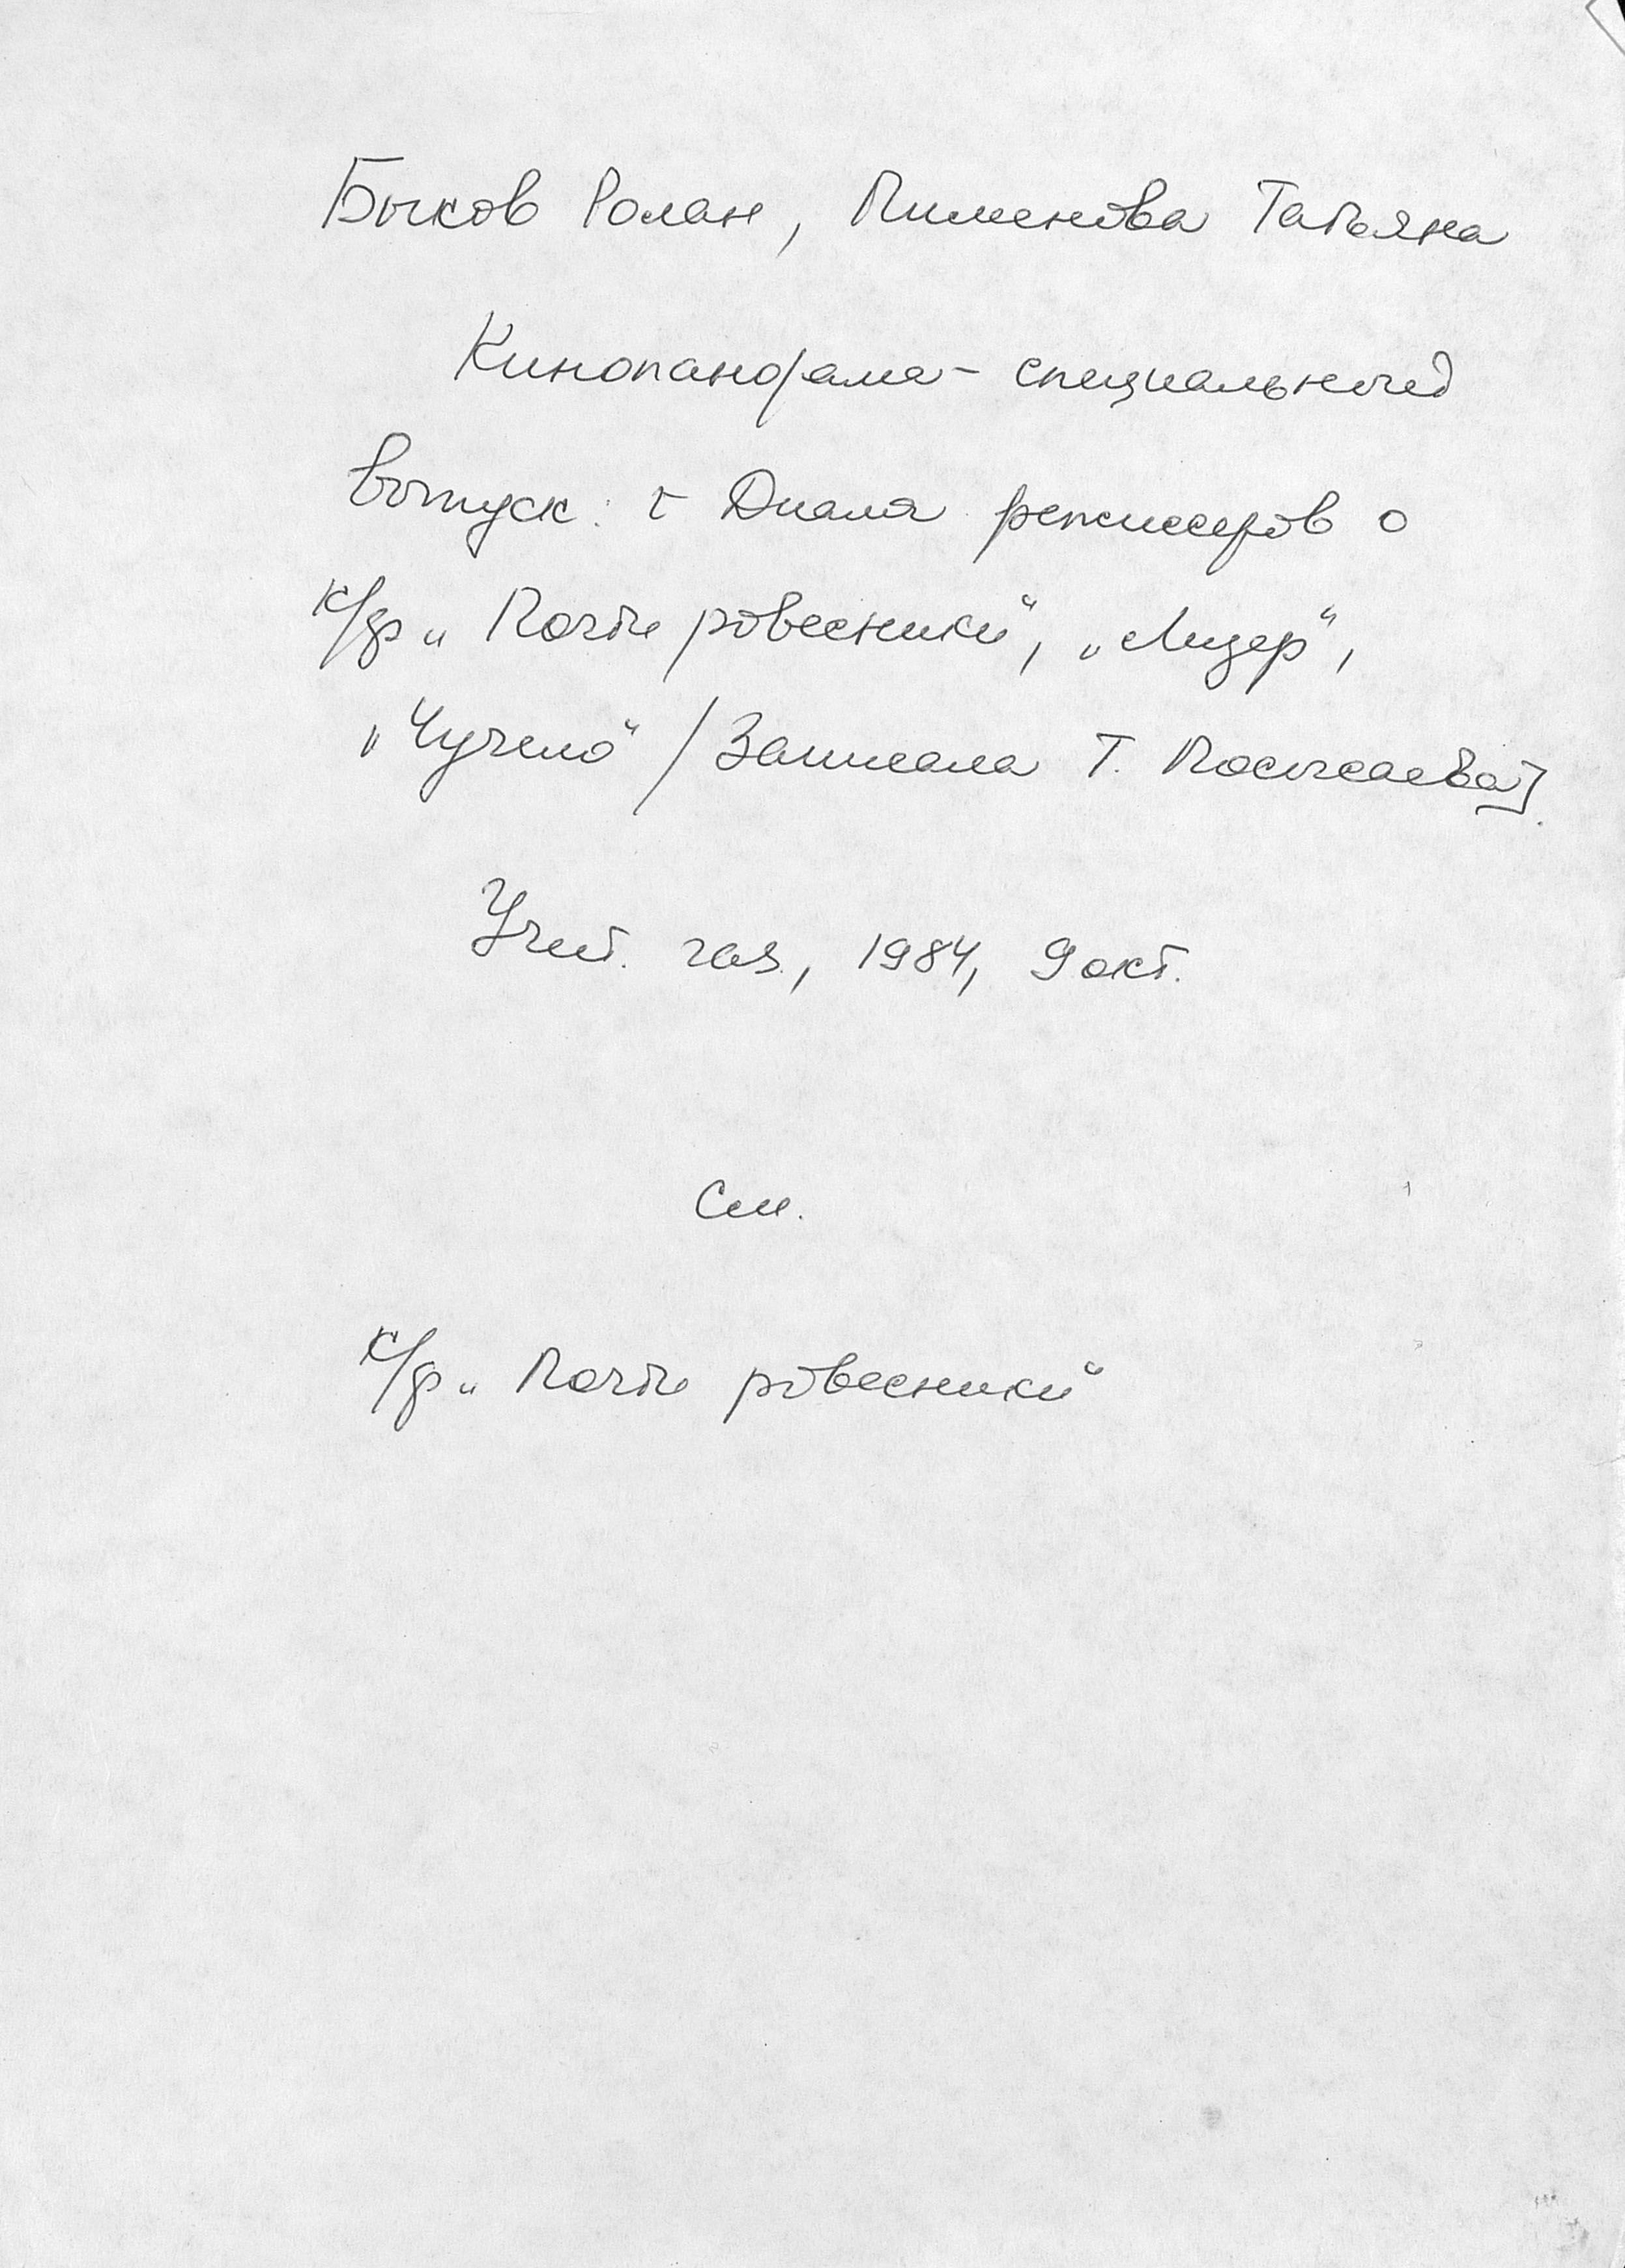 Быков Ролан, Пименова Татьяна
Кинопанорама - специальный
выпуск: [ Диалог режиссеров о
к/ф „Почти ровесники“, „Лидер“,
„Чучело“ / Записала Т.
Учит. газ., 1984, 9 окт.
См.
к/ф „Почти ровесники“